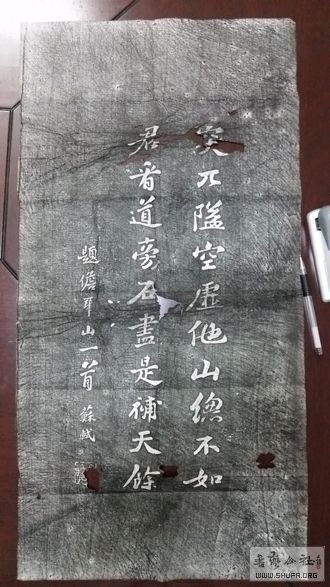 突兀隘空虛他山總不如
君看道旁石盡是補天餘
題儋耳山一首 蘇軾
WWW.SHUFA.ORG